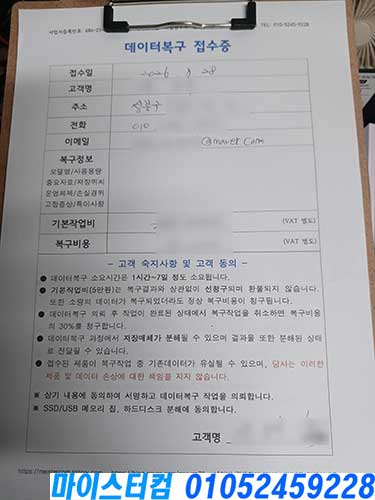 사업자등록번호
TEL: 010-5245-9228
데이터복구 접수증
접수일 2026 28
고객명
주소 성북구
전화 010
이메일 @naver.com
복구정보
모델명/사용용량
중요자료/저장위치
운영체제/손실경위
고장증상/특이사항
기본작업비 (VAT 별도)
복구비용 (VAT 별도)
- 고객 숙지사항 및 고객 동의 -
● 데이터복구 소요시간은 1시간~7일 정도 소요됩니다.
● 기본작업비(5만원)는 복구결과와 상관없이 선청구되며 환불되지 않습니다.
또한 소량의 데이터가 복구되었더라도 정상 복구비용이 청구됩니다.
● 데이터복구 의뢰 후 작업이 완료된 상태에서 복구작업을 취소하면 복구비용
의 30%를 청구합니다.
● 데이터복구 과정에서 저장매체가 분해될 수 있으며 결과물 또한 분해된 상태
로 전달될 수 있습니다.
● 접수된 제품이 복구작업 중 기존데이터가 유실될 수 있으며, 당사는 이러한
제품 및 데이터 손상에 대한 책임을 지지 않습니다.
※ 상기 내용에 동의하여 서명하고 데이터복구 작업을 의뢰합니다.
※ SSD/USB 메모리 칩, 하드디스크 분해에 동의합니다.
고객명
마이스터컴 01052459228